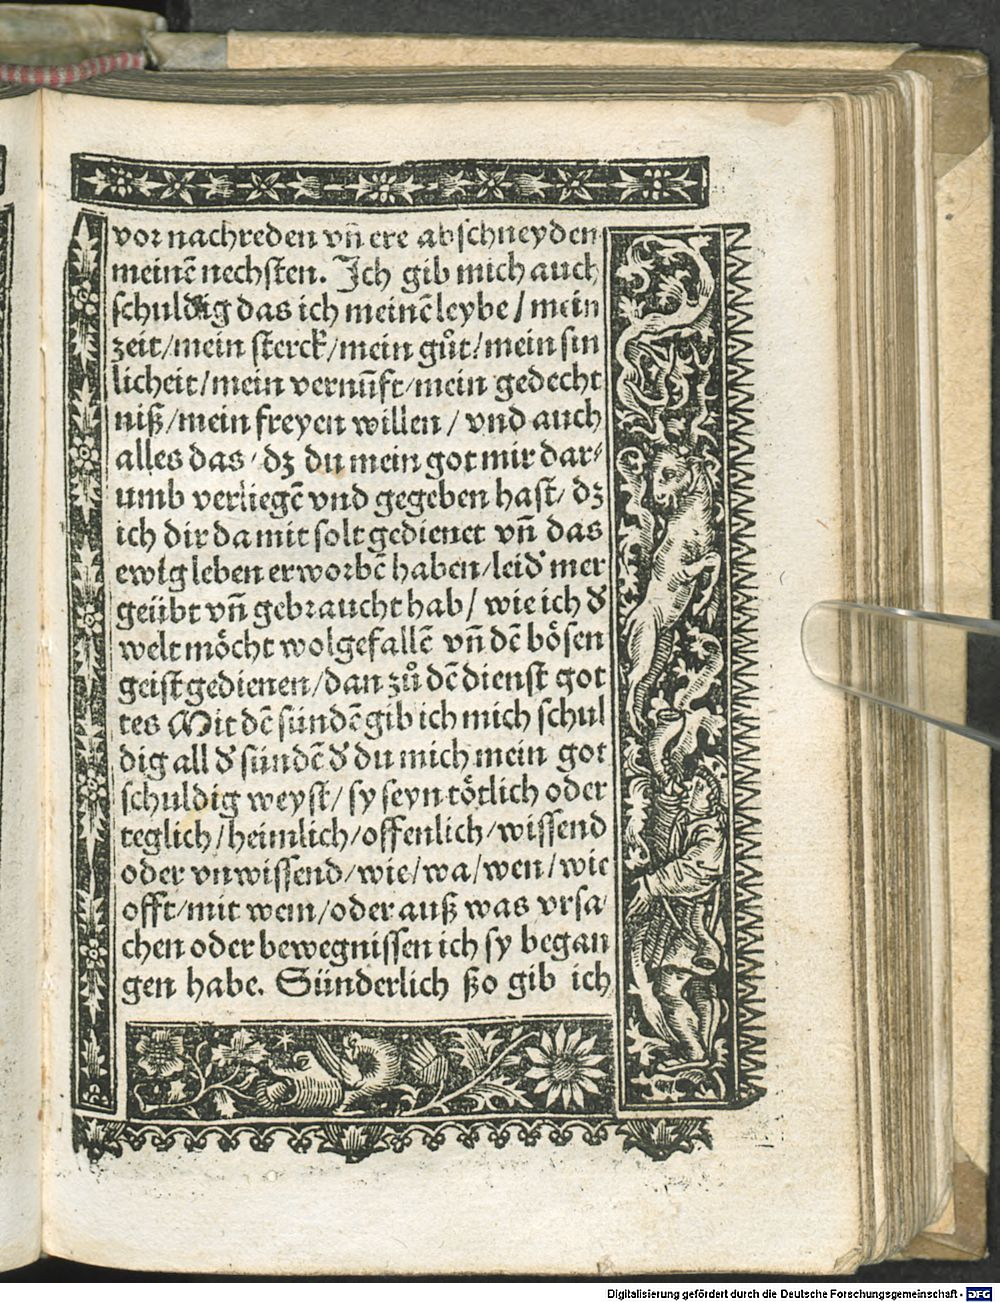 vor nachreden vñ ere abschneyden
meinē nechsten. Ich gib mich auch
schuldig das ich meinē leybe / mein
zeit / mein sterck / mein gůt / mein sin
licheit / mein vernūft / mein gedecht
niß / mein freyen willen / vnd auch
alles das / dz du mein got mir dar⸗
umb verliegē vnd gegeben hast / dz
ich dir da mit solt gedienet vñ das
ewig leben erworbē haben / leid' mer
geübt vñ gebraucht hab / wie ich d'
welt möcht wolgefallē vñ dē bösen
geist gedienen / dan zů dē dienst got
tes Mit dē sündē gib ich mich schul
dig all d' sündē d' du mich mein got
schuldig weyst / sy seyn tötlich oder
teglich / heimlich / offenlich / wissend
oder vnwissend / wie / wa / wen / wie
offt / mit wem / oder auß was vrsa
chen oder bewegnissen ich sy began
gen habe. Sünderlich ßo gib ich
Digitalisierung gefördert durch die Deutsche Forschungsgemeinschaft - DFG